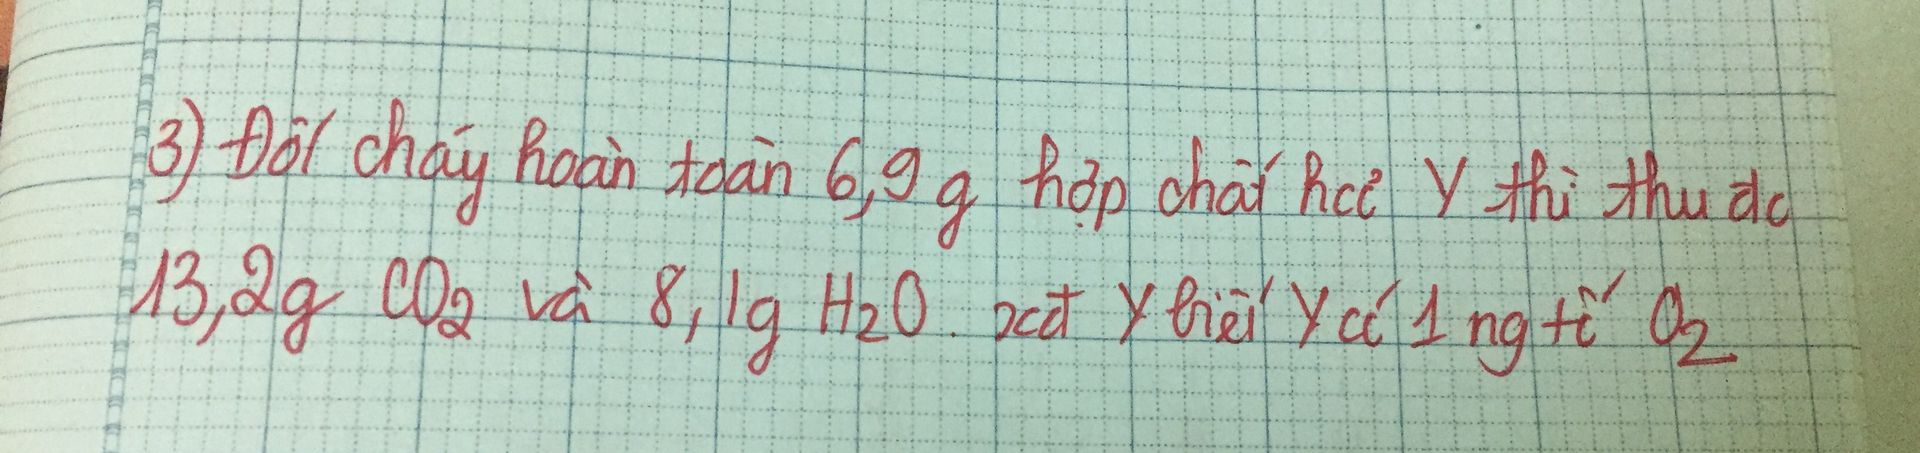 3) Đốt cháy hoàn toàn 6,9 g hợp chất hcc Y thì thu đc
13,2g CO2 và 8,1g H2O. xđ Y biết Y có 1 ng tố O2